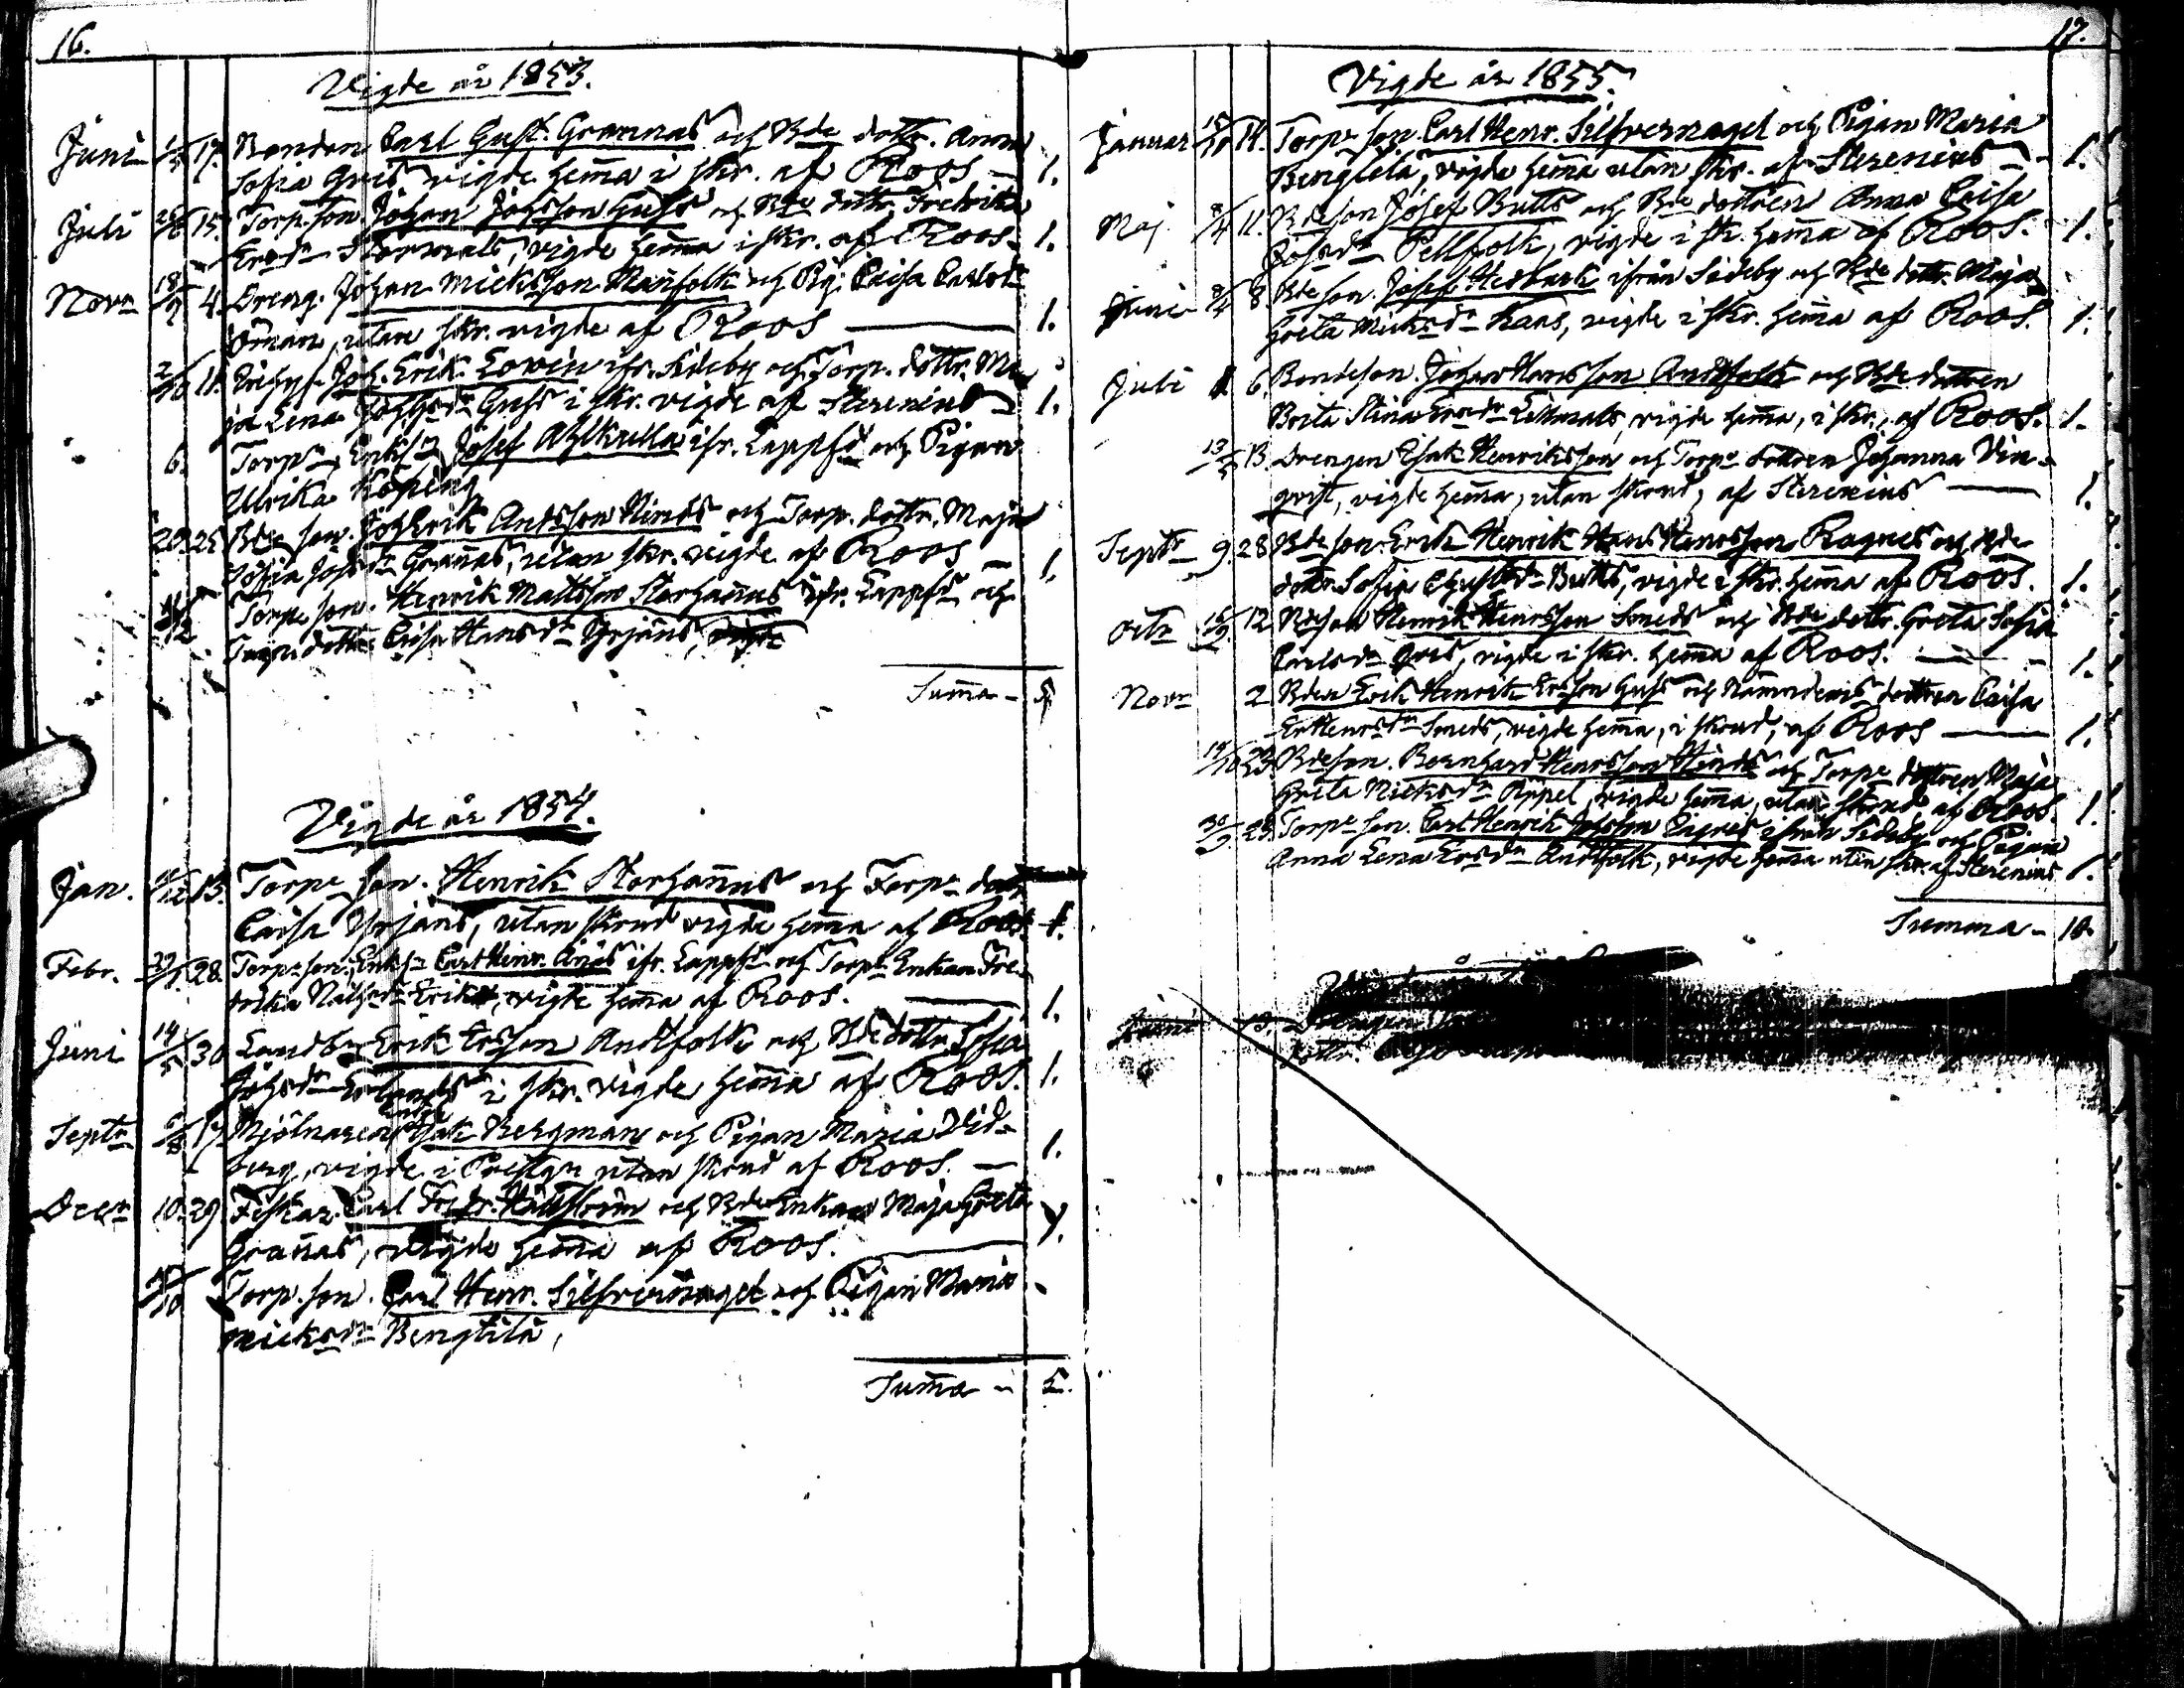 16.
Vigde år 1853.
Juni 17. Bonden Carl Gust. Grannas och Bde dottr. Anna
Sofia Gris vigde hemma i skr. af Roos 1.
Juli 15. Torp. son. Johan Johsson Guss och Bde dottr. Fredrika
vigde hemma i skr. af Roos. 1.
Novr 18/9 4. Dreng. Johan Micksson Mannfolk och Pig. Caisa
Öman, utan skr. vigde af Roos 1.
2/10 11. Joh. Erik Lovin ifr. Sideby och Torp. dottr. Ma
ja Lena Guss i skr. vigde af Sterenius 1.
6. Torpr Enkl. Josef Ahlkulla ifr. Lappfd och Pigan
Ulrika Köping
20. 25 Bde son. Joh Erik Andsson Hinds och Torp. dottr. Maja
Sofia Johsdr Grannas, utan skr. vigde af Roos 1.
Torpe son. Henrik Mattsson Storhannus ifr. Lappfd och
Caisa Hansdr Yrjans, vigde
Summa
Vigde år 1854.
Jan. 13. Torpe son. Henrik Storhannus och Torpr
Caisa Yrjans, utan skrud vigde hemma af Roos 1.
Febr. 28. Torpr son, Enkl. Carl Henr. ifr. Lappfd och Torpr Enkan Fre-
drika vigde hemma af Roos. 1.
Juni 14/5 30 Landb. Erik Ersson Andtfolk och Bde dottr. Sofia
Johsdr i skr. vigde hemma af Roos. 1.
Septr 17 Mjölnaren Isak Bergman och Pigan Maria Wid-
berg, vigde i Prestgn utan skrud af Roos. 1.
Decr 10. 29 Fiskar. Carl Fredr. Hällström och Bde Enkan Maja Greta
Grannas, vigde hemma af Roos. 1.
Torp. son. Carl Henr. Silfvernagel och Pigan Maria
Micksdr Bengtilä,
Summa 5.
17.
Vigde år 1855.
Januar 14. Torpr son. Carl Henr. Silfvernagel och Pigan Maria
Bengtilä, vigde hemma utan skr. af Sterenius 1.
Maj 11. Bdeson Josef Butts och Bde dottren Anna Caisa
Johsdr Pellfolk, vigde i sk. hemma af Roos. 1.
Juni 8 Bde son. Josef Hedback ifrån Sideby och Bde dottr. Maja
Greta Micksdr Hans, vigde i skr. hemma af Roos. 1.
Juli 6. Bondeson. Johan Hansson Andtfolk och Bde dottren
Brita Stina Ersdr Lillmats, vigde hemma, i skr., af Roos. 1.
13. Drengen Isak Henriksson och Torpr dottren Johanna Vin-
qvist, vigde hemma, utan skrud, af Sterenius 1.
Septr 9. 28 Bdeson Erik Henrik Hans Henrsson Ragnels och Bde
dottr. Sofia Butts, vigde i skr. hemma af Roos. 1.
Octr 16/9 12 Bdeson Henrik Henrsson Smeds och Bde dottr. Greta Sofia
Carlsdr Gris, vigde i skr. hemma af Roos. 1.
Novr 2 Bden Erik Henrik Ersson Guss och Nämndemis dottren Caisa
Er Henrsdr Smeds, vigde hemma, i skrud, af Roos 1.
14/10 23. Bdeson. Bernhard Henrsson Hinds och Torpr dottren Maja
Greta Micksdr Appel, vigde hemma, utan skrud af Roos. 1.
30/9 23. Torpr son. Carl Henrik Johsson ifrån Sideby och Pigan
Anna Lena Ersdr Andtfolk, vigde hemma utan skr. af Sterenius 1.
Summa - 10.
Juni 13. Drengen
dottr.